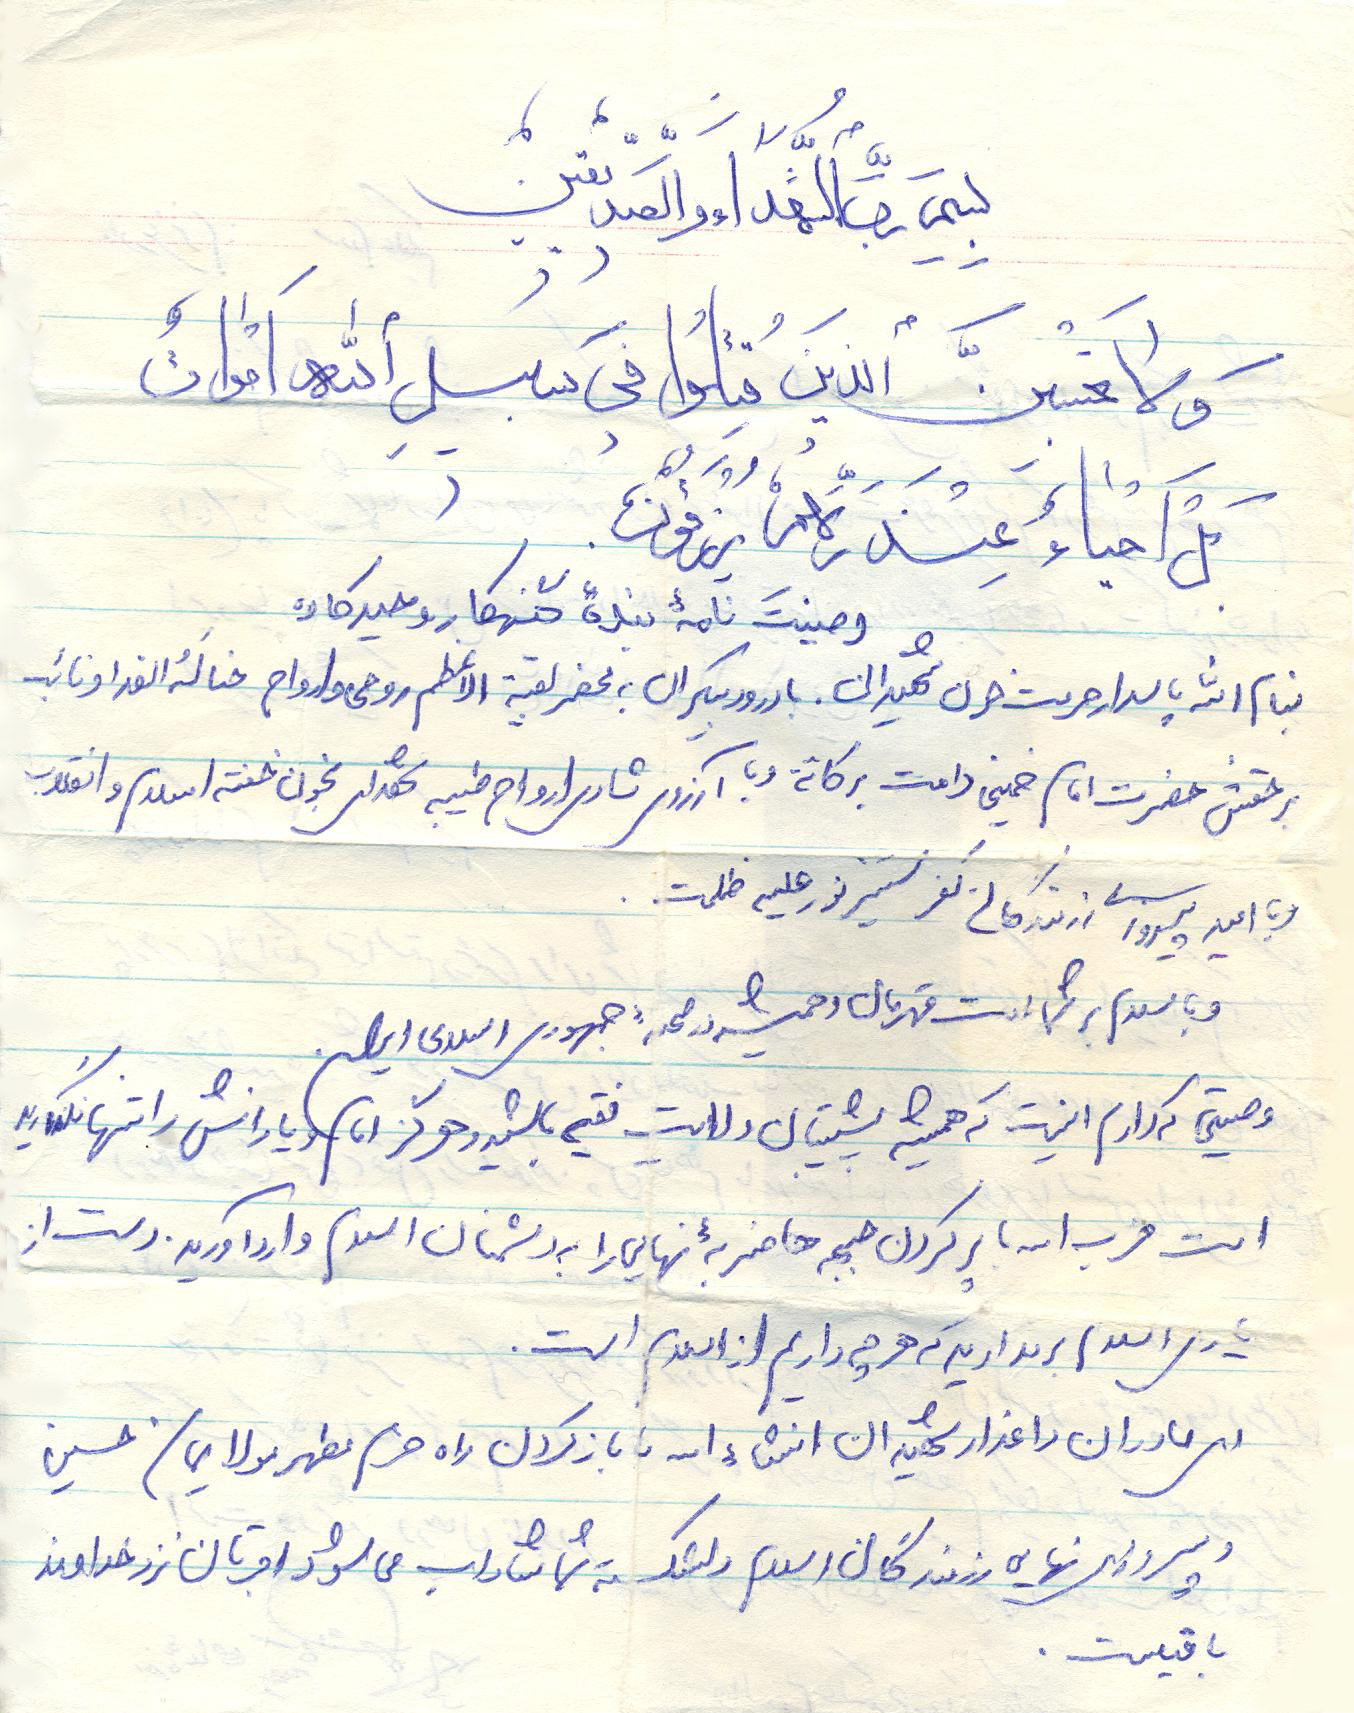 بِسْمِ رَبِّ الشُّهَدَاءِ وَالصِّدِّيقِينَ
وَلَا تَحْسَبَنَّ الَّذِينَ قُتِلُوا فِي سَبِيلِ اللَّهِ أَمْوَاتٌ
بَلْ أَحْيَاءٌ عِنْدَ رَبِّهِمْ يُرْزَقُونَ
وصیت نامهٔ بندهٔ گنهکار وحید کاوه
بنام الله پاسدار حرمت خون شهیدان. با درود بیکران به محضر بقیة الاعظم روحی و ارواح لهُ الفدا و نائب
برحقش حضرت امام خمینی دامت برکاتة و با آرزوی شادی ارواح طیبه شهدای بخون خفته اسلام و انقلاب
و با امید پیروزی رزمندگان کفر ستیز نور علیه ظلمت.
و با سلام بر امت قهرمان و همیشه در صحنهٔ جمهوری اسلامی ایران.
وصیتی که دارم اینست که همیشه پشتیبان ولایت فقیه باشید و هرگز امام و یارانش را تنها نگذارید
امت حزب الله با پر کردن جبهه ها ضربهٔ نهایی را به دشمنان اسلام وارد آورید. دست از
یاری اسلام برندارید که هرچه داریم از اسلام است.
ای مادران داغدار شهیدان انشاءالله با باز کردن راه حرم مطهر مولایمان حسین
و پیروزی نهایی رزمندگان اسلام دل شما شاداب می شود اجرتان نزد خداوند
باقیست.